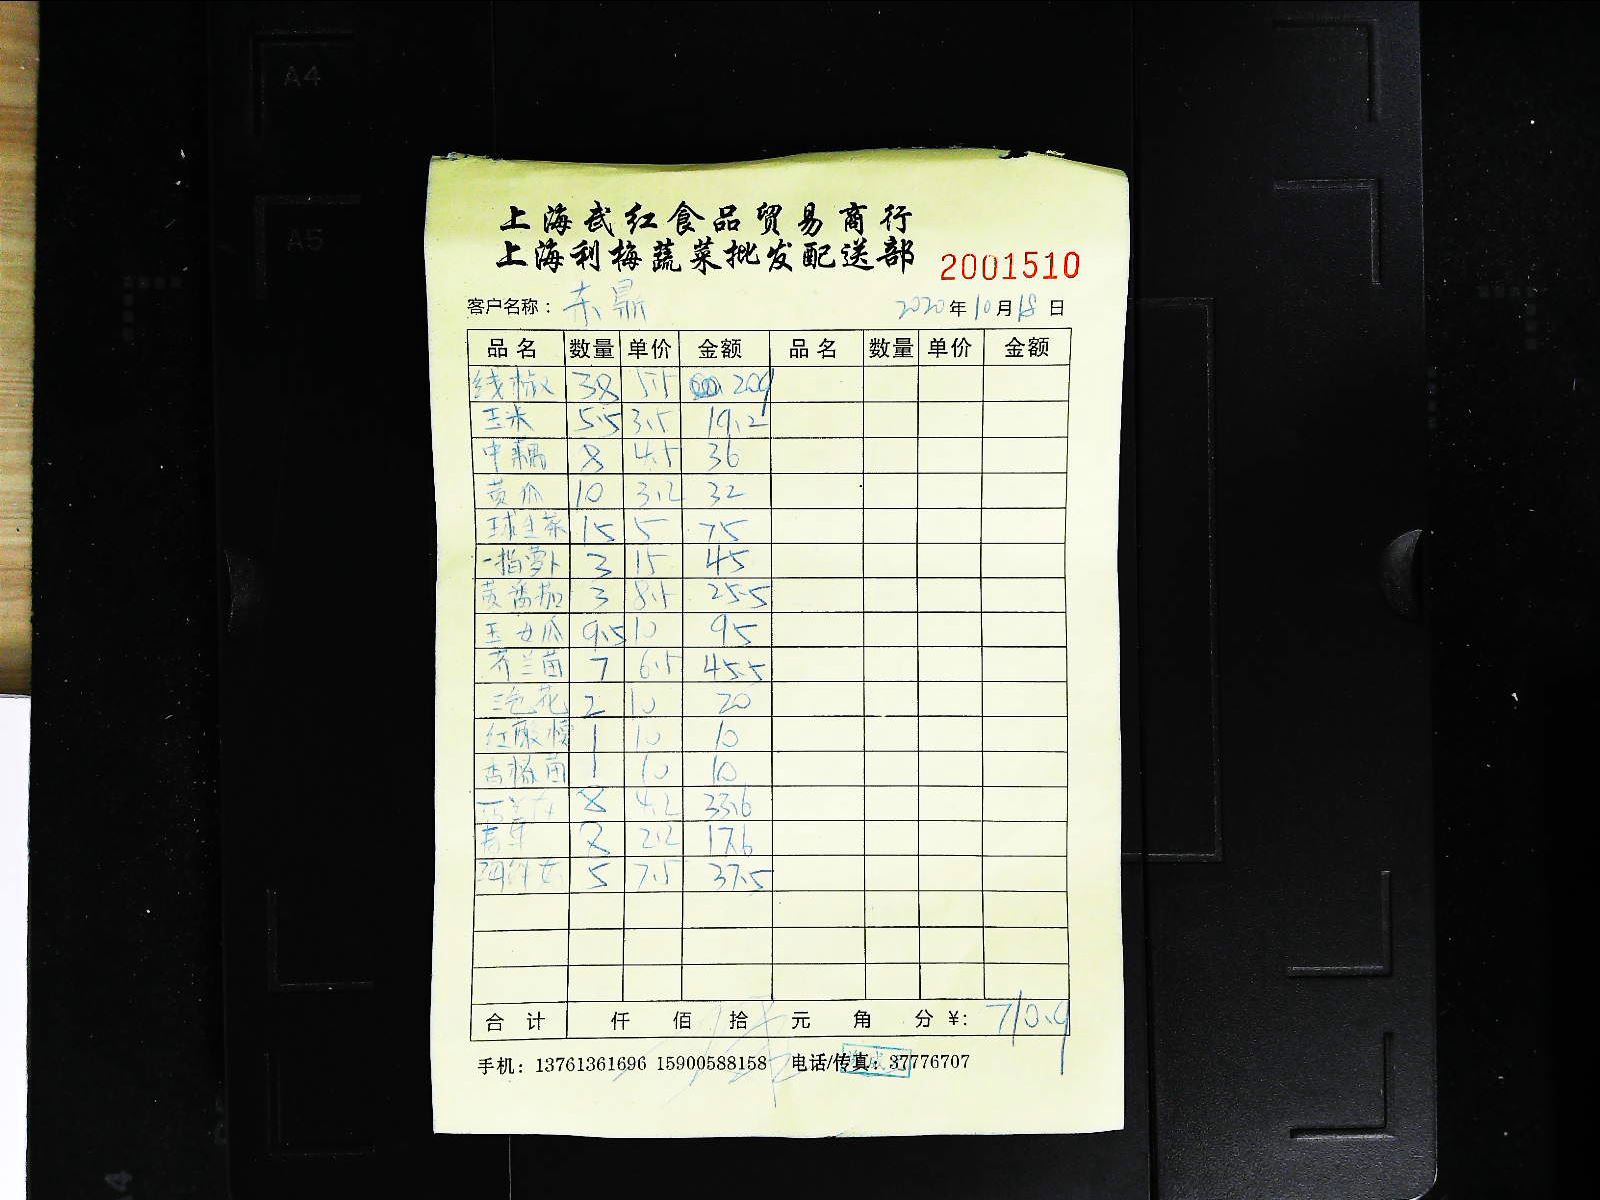 A4
A5
上海武红食品贸易商行
上海利梅蔬菜批发配送部 2001510
客户名称： 东鼎 2020年10月18日
品名 数量 单价 金额 品名 数量 单价 金额
线椒 38 5.5 209
玉米 5.5 3.5 19.2
中藕 8 4.5 36
黄瓜 10 3.2 32
球生菜 15 5 75
一指萝卜 3 15 45
黄番茄 3 8.5 25.5
玉女瓜 9.5 10 95
芥兰苗 7 6.5 45.5
三色花 2 10 20
红酸模 1 10 10
香椒苗 1 10 10
8 4.2 33.6
8 2.2 17.6
5 7.5 37.5
合计 仟 佰 拾 元 角 分 ¥: 710.9
手机：13761361696 15900588158 电话/传真：37776707